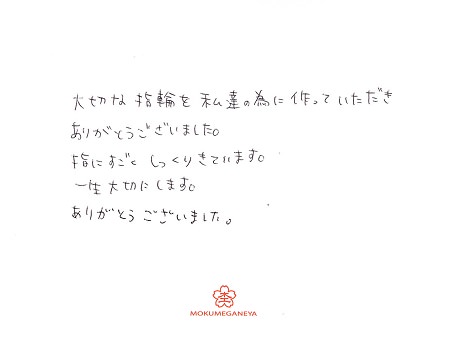 大切な指輪を私達の為に作っていただき
ありがとうございました。
指にすごくしっくりきています。
一生大切にします。
ありがとうございました。
杢
MOKUMEGANEYA